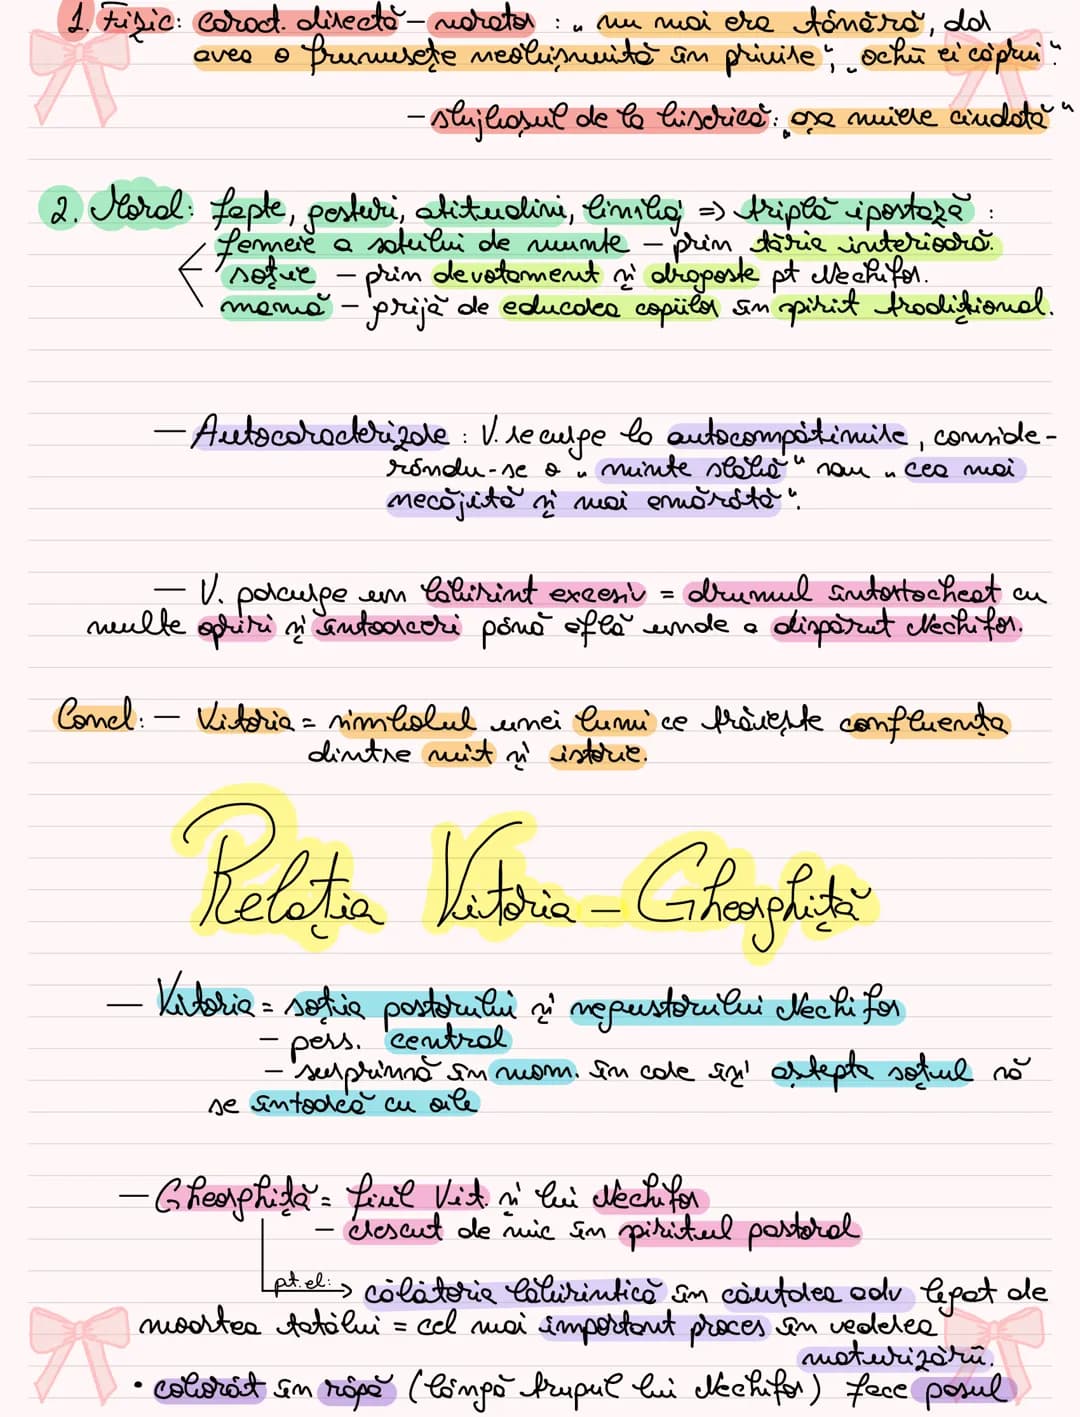 1. Fizic: caract. directă – narator : „nu mai era tânără, dar
avea o frumusețe neobișnuită în privire“; „ochii ei căprui“.
– slujbașul de la biserică: „așa muiere ciudată“
2. Moral: fapte, gesturi, atitudini, limbaj => triplă ipostază :
femeie a satului de munte – prin tăria interioară.
soție – prin devotament și dragoste pt Nechifor.
mamă – grijă de educarea copiilor în spirit tradițional.
– Autocaracterizare : V. se culpe la autocompătimire, conside-
rându-se o „minte slabă“ sau „cea mai
necăjită și mai amărâtă“.
– V. parcurge un labirint excesiv = drumul întortocheat cu
multe opriri și întoarceri până află unde a dispărut Nechifor.
Concl: – Vitoria = simbolul unei lumi ce trăiește confluența
dintre mit și istorie.
Relația Vitoria – Gheorghiță
– Vitoria = soția păstorului și negustorului Nechifor
– pers. central
– surprinsă în mom. în care își aștepta soțul să
se întoarcă cu oile
– Gheorghiță = fiul Vit. și lui Nechifor
– crescut de mic în spiritul pastoral
pt. el: → călătoria labirintică în căutarea adv legat de
moartea tatălui = cel mai important proces în vederea
maturizării.
• coborât în râpă (lângă trupul lui Nechifor) face pasul